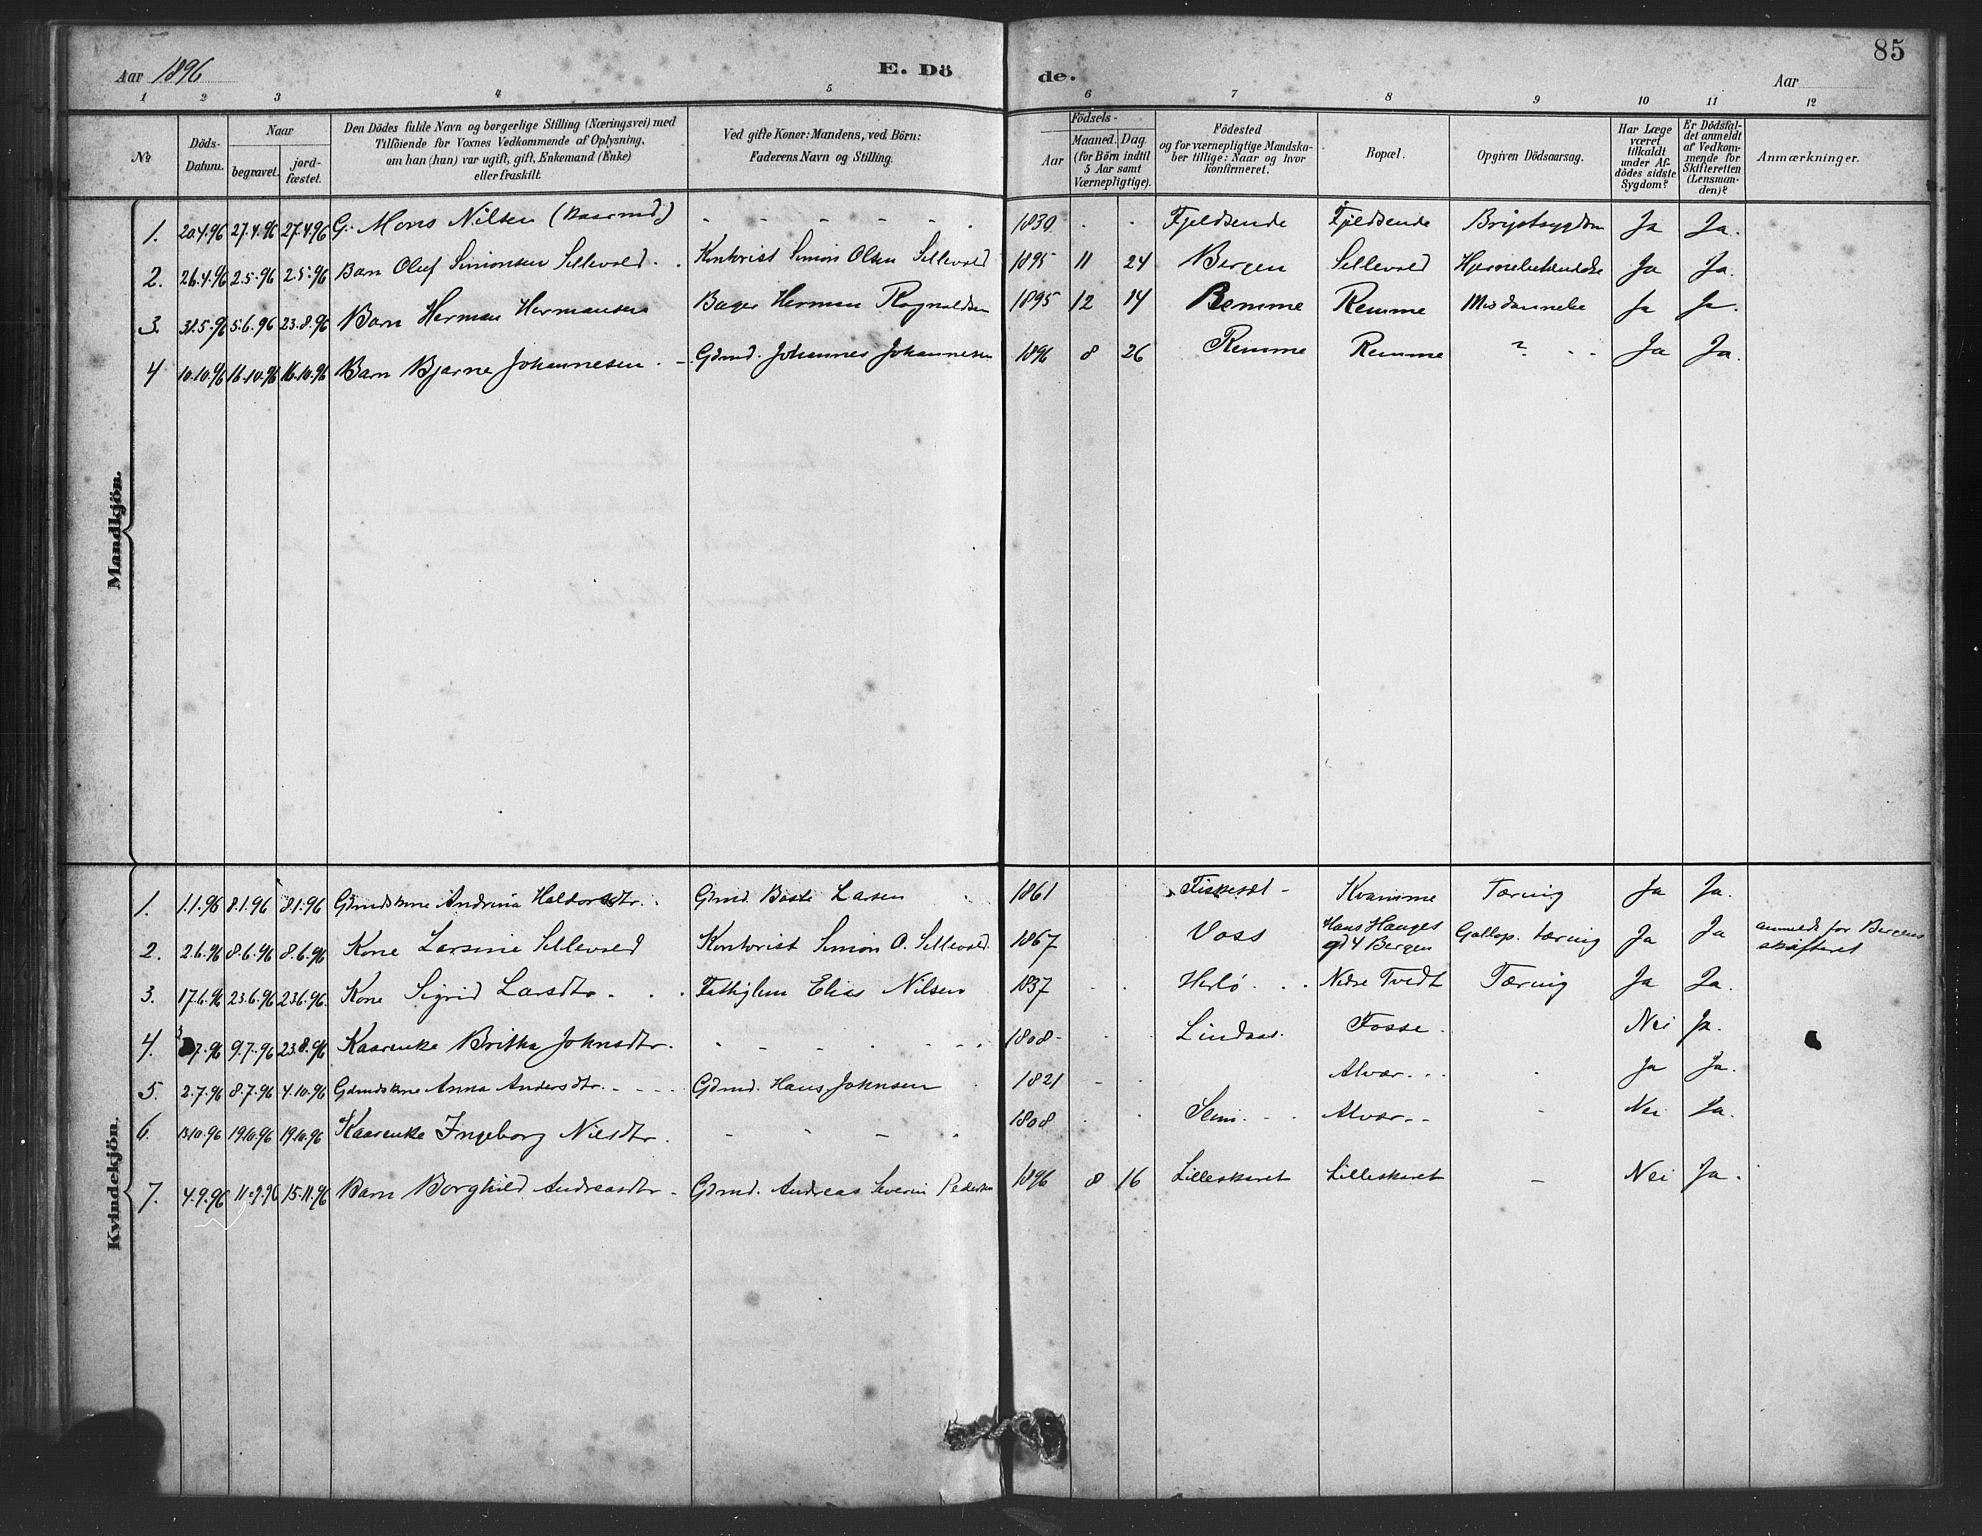 85
Aar 1896 E. Dö de. Aar
1 2 3 4 5 6 7 8 9 10 11 12
№ Döds-Datum. Naar begravet. jord-fæstet. Den Dödes fulde Navn og borgerlige Stilling (Næringsvei) med Tilföiende for Voxnes Vedkommende af Oplysning, om han (hun) var ugift, gift, Enkemand (Enke) eller fraskilt. Ved gifte Koner: Mandens, ved Börn: Faderens Navn og Stilling. Födsels- Aar Maaned. Dag. (for Börn indtil 5 Aar samt Værnepligtige). Födested og for værnepligtige Mandskaber tillige: Naar og hvor konfirmeret. Bopæl. Opgiven Dödsaarsag. Har Læge været tilkaldt under Afdödes sidste Sygdom? Er Dödsfaldet anmeldt af Vedkommende for Skifteretten (Lensmanden)? Anmærkninger.
Mandkjön.
1. 20.4.96 27.4.96 27.4.96 G. Mons Nilsen (Kaarmd.) - - - - - 1830 - - Fjeldsende Fjeldsende Brystsygdom Ja Ja.
2. 26.4.96 2.5.96 2.5.96 Barn Oluf Simonsen Sellevold. Kontorist Simon Olsen Sellevold 1895 11 24 Bergen Sellevold Hjernebetændelse Ja Ja.
3. 31.5.96 5.6.96 23.8.96 Barn Herman Hermansen Bager Herman Ragnvaldsen 1895 12 14 Remme Remme Misdannelse Ja Ja.
4 10.10.96 16.10.96 16.10.96 Barn Bjarne Johannesen - Gdmd. Johannes Johannesen 1896 8 26 Remme Remme ? - - Ja Ja.
Kvindekjön.
1. 1.1.96 8.1.96 8.1.96 Gdmdskne Andrina Haldorsdtr. Gdmd. Baste Larsen 1861 Fiskesæt - Kvamme Tæring Ja Ja.
2. 2.6.96 8.6.96 8.6.96 Kone Larsine Sellevold Kontorist Simon O. Sellevold 1867 Voss Hans Hauges gd 4 Bergen Gallop. tæring Ja Ja anmeldt for Bergens skifteret
3. 17.6.96 23.6.96 23.6.96. Kone Sigrid Larsdtr. Fattiglem Elias Nilsen 1837 Herlø Nedre Tvedt Tæring Ja Ja.
4. 3.7.96 9.7.96 23.8.96 Kaarenke Britha Johnsdtr. - - - - 1808 Lindaas. Fosse. Nei Ja.
5. 2.7.96 8.7.96 4.10.96 Gdmdskne Anna Andersdtr. Gdmd. Hans Johnsen 1821 Alvær. Ja Ja.
6. 13.10.96 19.10.96 19.10.96 Kaarenke Ingeborg Nilsdtr. - - - 1808 Seim. Alvær. - Nei Ja.
7. 4.9.96 11.9.96 15.11.96 Barn Borghild Andreasdtr. Gdmd. Andreas Severin Pedersen 1896 8 16 Lilleskaret Lilleskaret - Nei Ja.